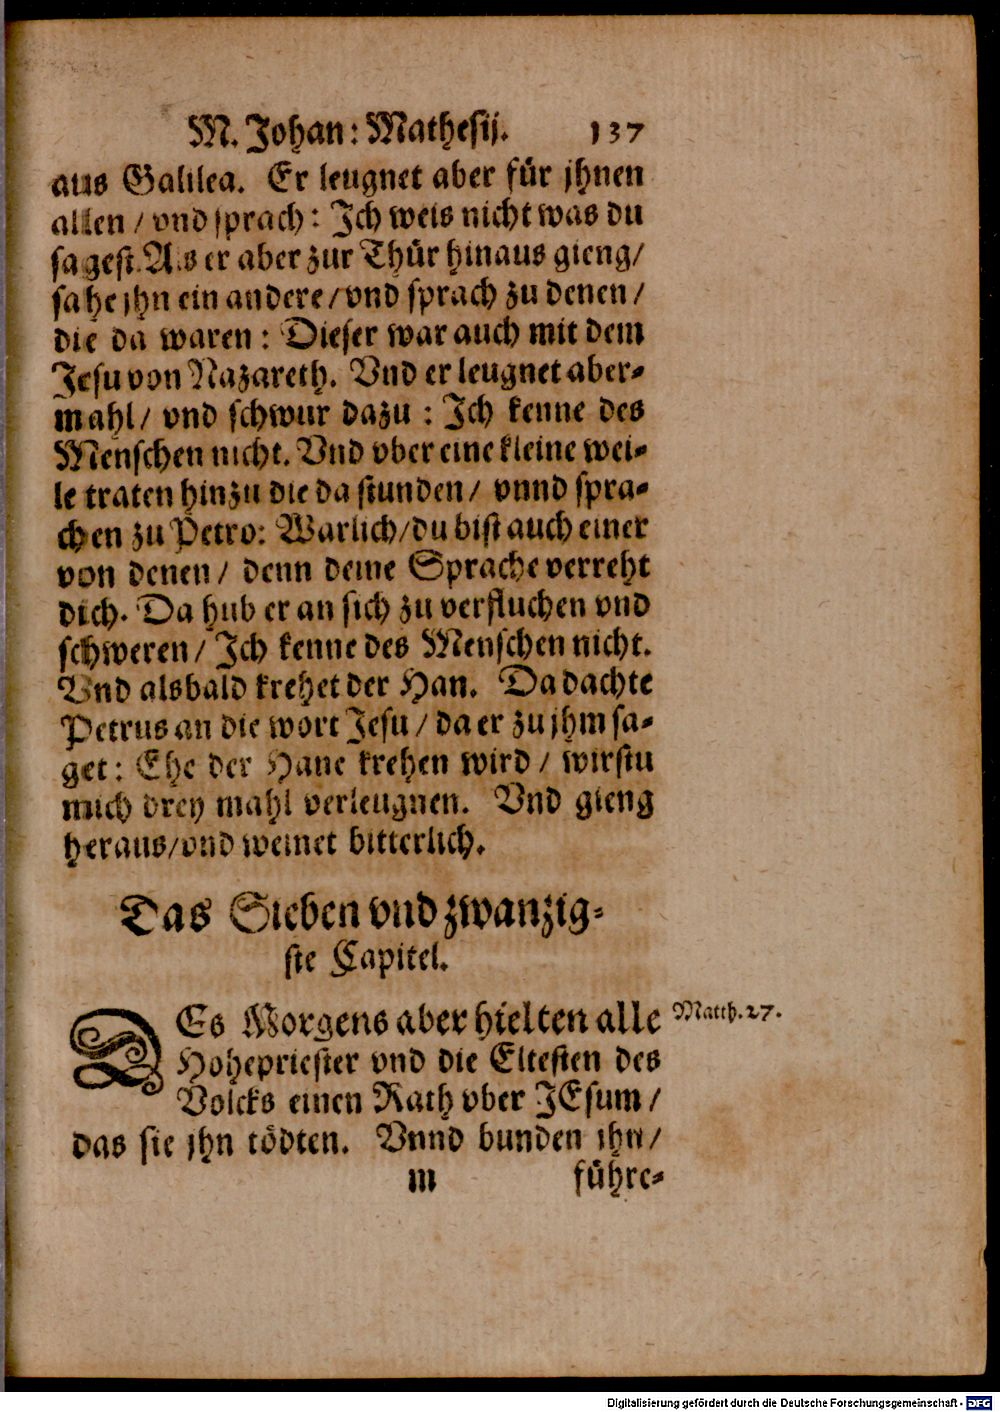 M. Johan: Mathesij. 137
aus Galilea. Er leugnet aber für jhnen
allen / vnd sprach: Ich weis nicht was du
sagest. Als er aber zur Thür hinaus gieng/
sahe jhn ein andere / vnd sprach zu denen /
die da waren: Dieser war auch mit dem
Jesu von Nazareth. Vnd er leugnet aber-
mahl / vnd schwur dazu : Ich kenne des
Menschen nicht. Vnd vber eine kleine wei-
le traten hinzu die da stunden / vnnd spra-
chen zu Petro: Warlich/du bist auch einer
von denen / denn deine Sprache verreht
dich. Da hub er an sich zu verfluchen vnd
schweren / Ich kenne des Menschen nicht.
Vnd alsbald krehet der Han. Da dachte
Petrus an die wort Jesu / da er zu jhm sa-
get: Ehe der Hane krehen wird / wirstu
mich drey mahl verleugnen. Vnd gieng
heraus/vnd weinet bitterlich.
Das Sieben vnd zwanzig-
ste Capitel.
DEs Morgens aber hielten alle Matth. 27.
Hohepriester vnd die Eltesten des
Volcks einen Rath vber JEsum /
das sie jhn tödten. Vnnd bunden jhn /
m führe-
Digitalisierung gefördert durch die Deutsche Forschungsgemeinschaft - DFG